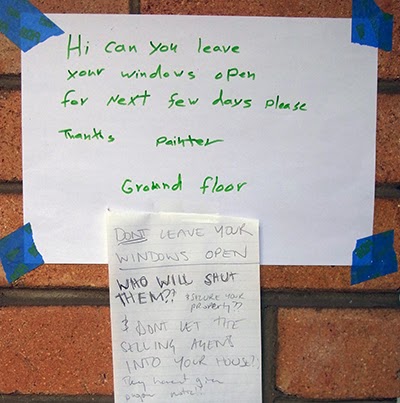 Hi can you leave
your windows open
for Next few days please
Thanks Painter
Ground floor
DONT LEAVE YOUR
WINDOWS OPEN
WHO WILL SHUT
THEM?? & SECURE YOUR
PROPERTY??
& DONT LET THE
SELLING AGENT
INTO YOUR HOUSE!!
They haven't given
proper notice